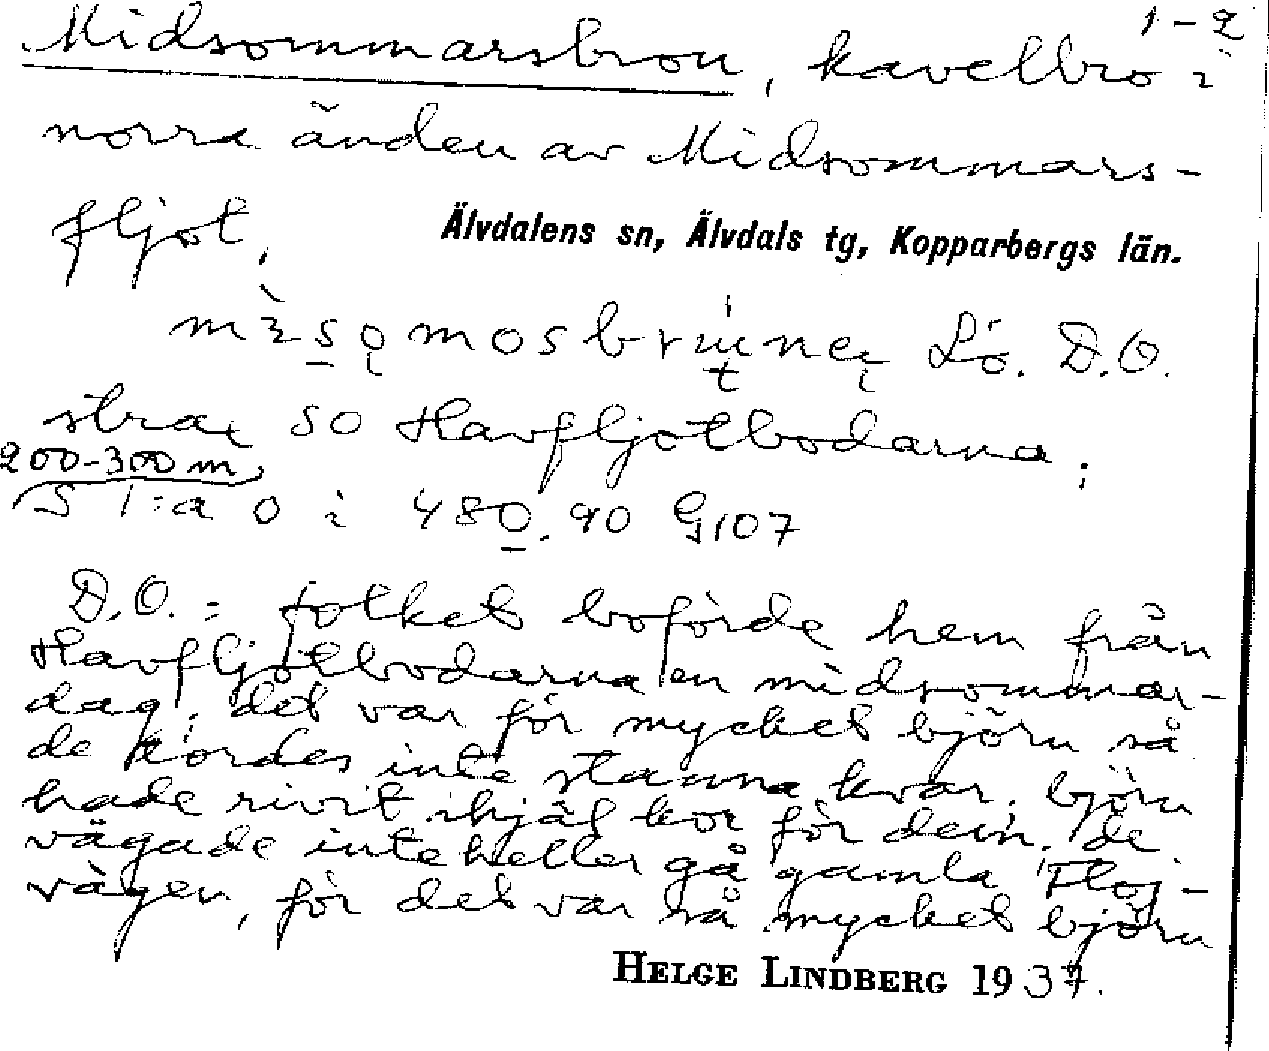 1-2
Midsommarsbron, kavelbro i
norra änden av Midsommars-
fljot,
Älvdalens sn, Älvdals tg, Kopparbergs län.
Lö. D.O.
strax SO Havfljotbodarna;
200-300 m
S 1:a o i 480.90 G107
D.O.: folket boförde hem från
Havfljotbodarna en midsommar-
dag; det var för mycket björn så
de tordes inte stanna kvar. björn
hade rivit ihjäl kor för dem. de
vågade inte heller gå gamla Floj-
vägen, för det var så mycket björn
HELGE LINDBERG 1937.